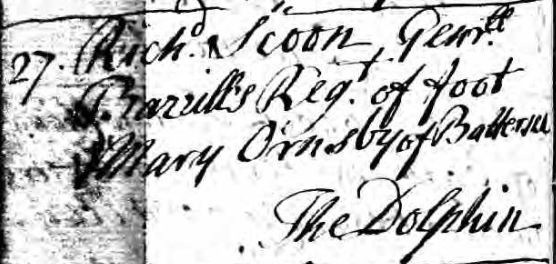 27. Richd. Scoon, Genrll
Barrill's Regt. of foot
& Mary Ornsby of Battersea
The Dolphin